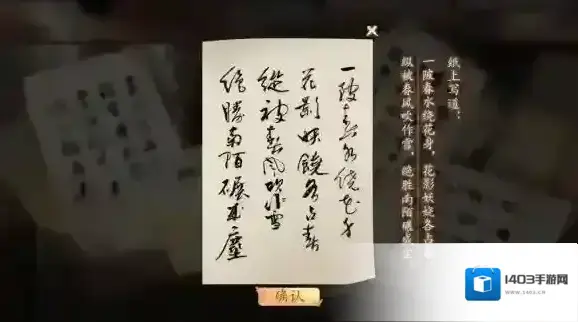 纸上写道：
一陂春水绕花身，花影妖娆各占
纵被春风吹作雪，绝胜南陌碾成尘
一陂春水繞花身
花影妖饒各占春
縱被春風吹作雪
絶勝南陌碾成塵
确认
1403手游网